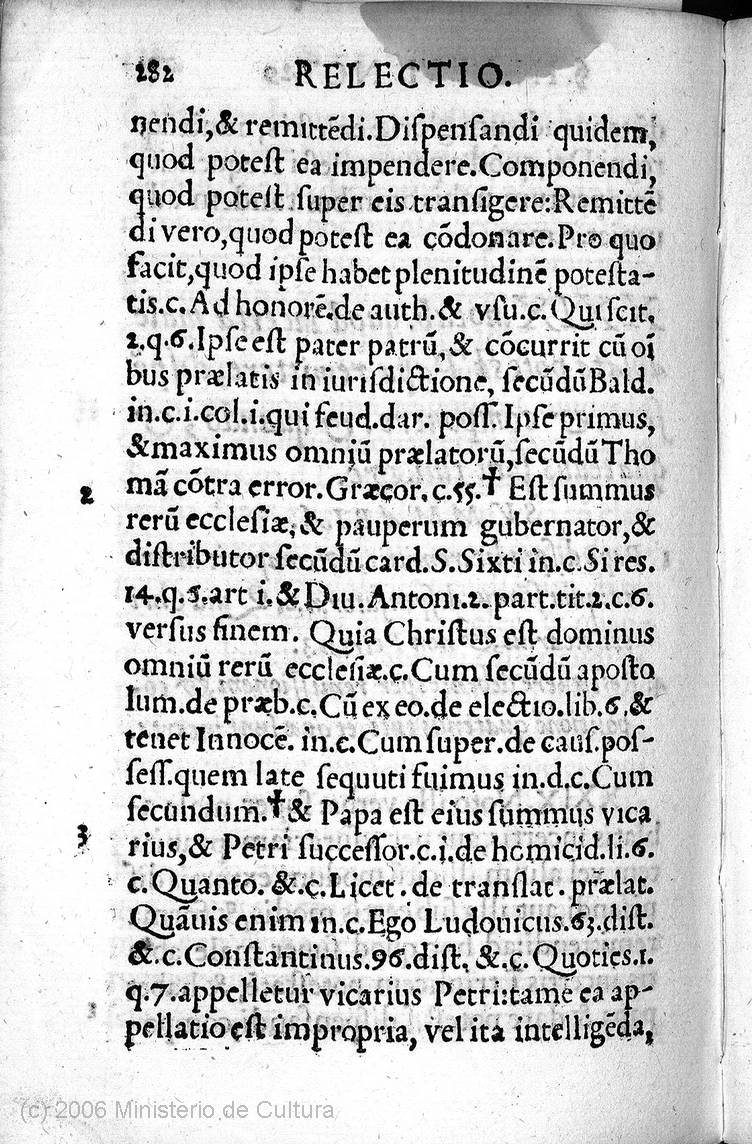 282 RELECTIO.
nendi,& remittēdi.Diſpenſandi quidem,
quod poteſt ea impendere.Componendi,
quod poteſt ſuper eis tranſigere:Remittē
di vero,quod poteſt ea cōdonare.Pro quo
facit,quod ipſe habet plenitudinē poteſta-
tis.c.Ad honorē.de auth.& vſu.c.Qui ſcit.
2.q.6.Ipſe eſt pater patrū,& cōcurrit cū oī
bus prælatis in iuriſdictione, ſecūdū Bald.
in.c.i.col.i.qui feud.dar. poſſ. Ipſe primus,
&maximus omniū prælatorū,ſecūdū Tho
2 mā cōtra error.Græcor.c.55.† Eſt ſummus
rerū eccleſiæ,& pauperum gubernator,&
diſtributor ſecūdū card.S.Sixti in.c.Si res.
14.q.5.art i.& Diu.Antoni.2.part.tit.2.c.6.
verſus finem. Quia Chriſtus eſt dominus
omniū rerū eccleſiæ.c.Cum ſecūdū apoſto
lum.de præb.c.Cū ex eo.de electio.lib.6.&
tenet Innocē. in.c.Cum ſuper.de cauſ.poſ-
ſeſſ.quem late ſequuti fuimus in.d.c.Cum
ſecundum.† & Papa eſt eius ſummus vica
3 rius,& Petri ſucceſſor.c.i.de homicid.li.6.
c.Quanto. &.c.Licet.de tranſlat. prælat.
Quāuis enim in.c.Ego Ludouicus.63.diſt.
&.c.Conſtantinus.96.diſt. &.c.Quoties.1.
q.7.appelletur vicarius Petri:tamē ea ap-
pellatio eſt impropria, vel ita intelligēda,
(c) 2006 Ministerio de Cultura